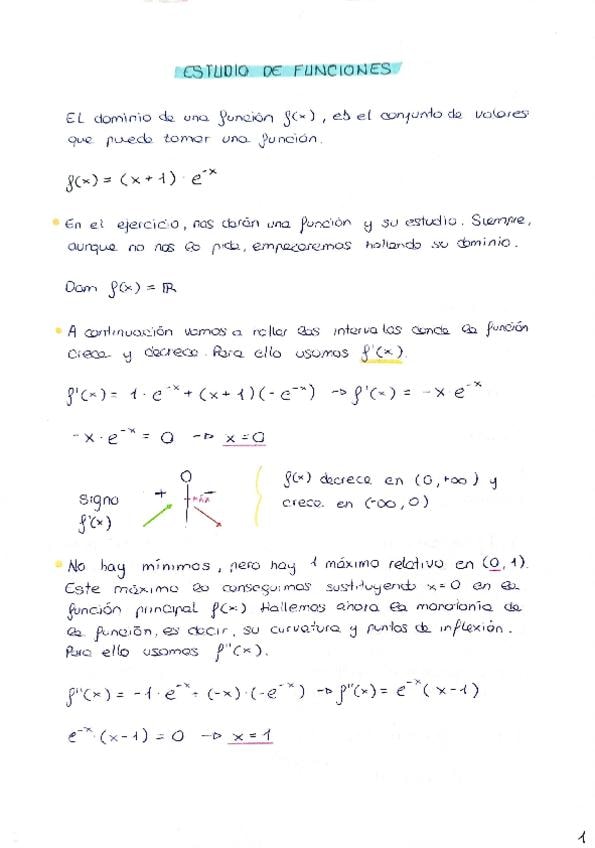 ESTUDIO DE FUNCIONES
El dominio de una función f(x), es el conjunto de valores
que puede tomar una función.
f(x) = (x + 1) · e^-x
• En el ejercicio, nos darán una función y su estudio. Siempre,
aunque no nos lo pida, empezaremos hallando su dominio.
Dom f(x) = ℝ
• A continuación vamos a hallar los intervalos donde la función
crece y decrece. Para ello usamos f'(x).
f'(x) = 1 · e^-x + (x + 1)(-e^-x) → f'(x) = -x e^-x
-x · e^-x = 0 → x = 0
0
signo + -
f'(x)
f(x) decrece en (0, +∞) y
crece en (-∞, 0)
• No hay mínimos, pero hay 1 máximo relativo en (0, 1).
Este máximo lo conseguimos sustituyendo x = 0 en la
función principal f(x) Hallemos ahora la monotonía de
la función, es decir, su curvatura y puntos de inflexión.
Para ello usamos f''(x).
f''(x) = -1 · e^-x + (-x) · (-e^-x) → f''(x) = e^-x (x - 1)
e^-x · (x - 1) = 0 → x = 1
1